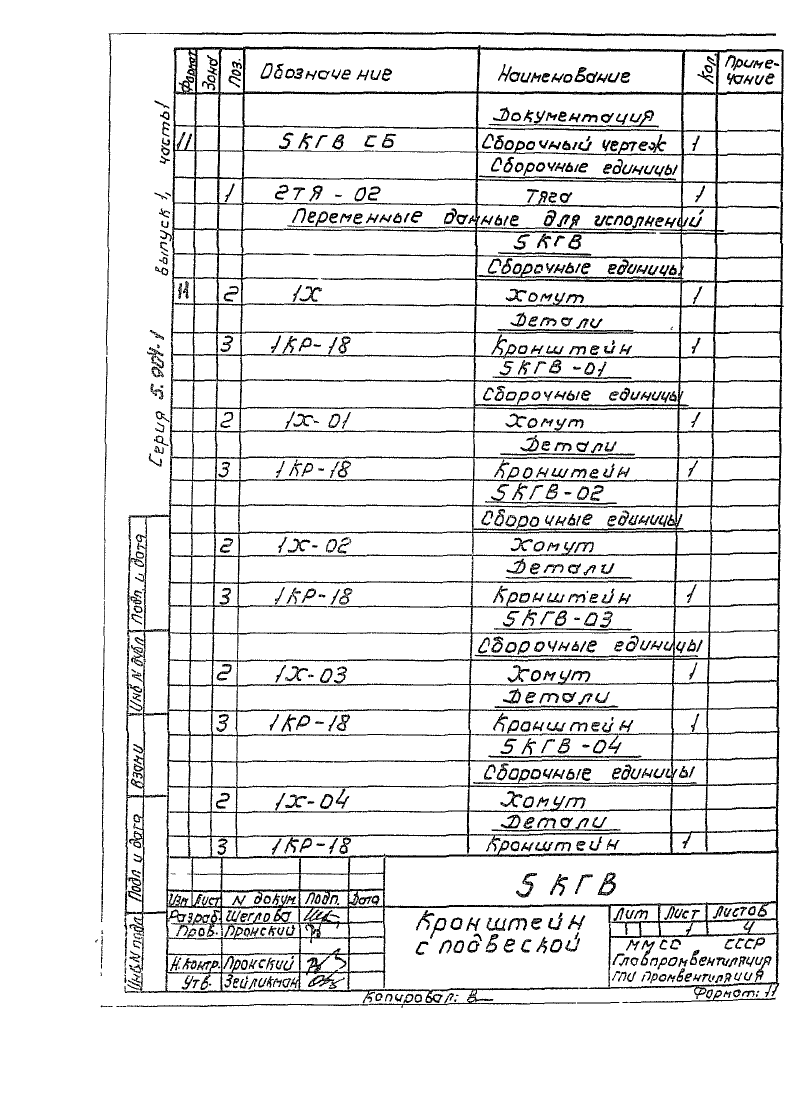 Формат Зона Поз. Обозначение Наименование Кол. Приме-чание
Документация
11 5КГВ СБ Сборочный чертеж 1
Сборочные единицы
1 2ТЯ-02 Тяга 1
Переменные данные для исполнений
5КГВ
Сборочные единицы
11 2 1Х Хомут 1
Детали
3 1КР-18 Кронштейн 1
5КГВ-01
Сборочные единицы
2 1Х-01 Хомут 1
Детали
3 1КР-18 Кронштейн 1
5КГВ-02
Сборочные единицы
2 1Х-02 Хомут
Детали
3 1КР-18 Кронштейн 1
5КГВ-03
Сборочные единицы
2 1Х-03 Хомут 1
Детали
3 1КР-18 Кронштейн 1
5КГВ-04
Сборочные единицы
2 1Х-04 Хомут
Детали
3 1КР-18 Кронштейн 1
Серия 5.904-1 выпуск 1, часть 1
Подп. и дата
Инв N дубл
Взам и
Подп и дата
Инв.N подл
Изм Лист N докум Подп. Дата
Разраб Щеглова
Пров. Пронский
Н.контр. Пронский
Утв. Зейликман
5КГВ
Кронштейн
с подвеской
Лит Лист Листов
1 4
ММСС СССР
Главпромвентиляция
ГПИ Промвентиляция
Копировал:
Формат: 11